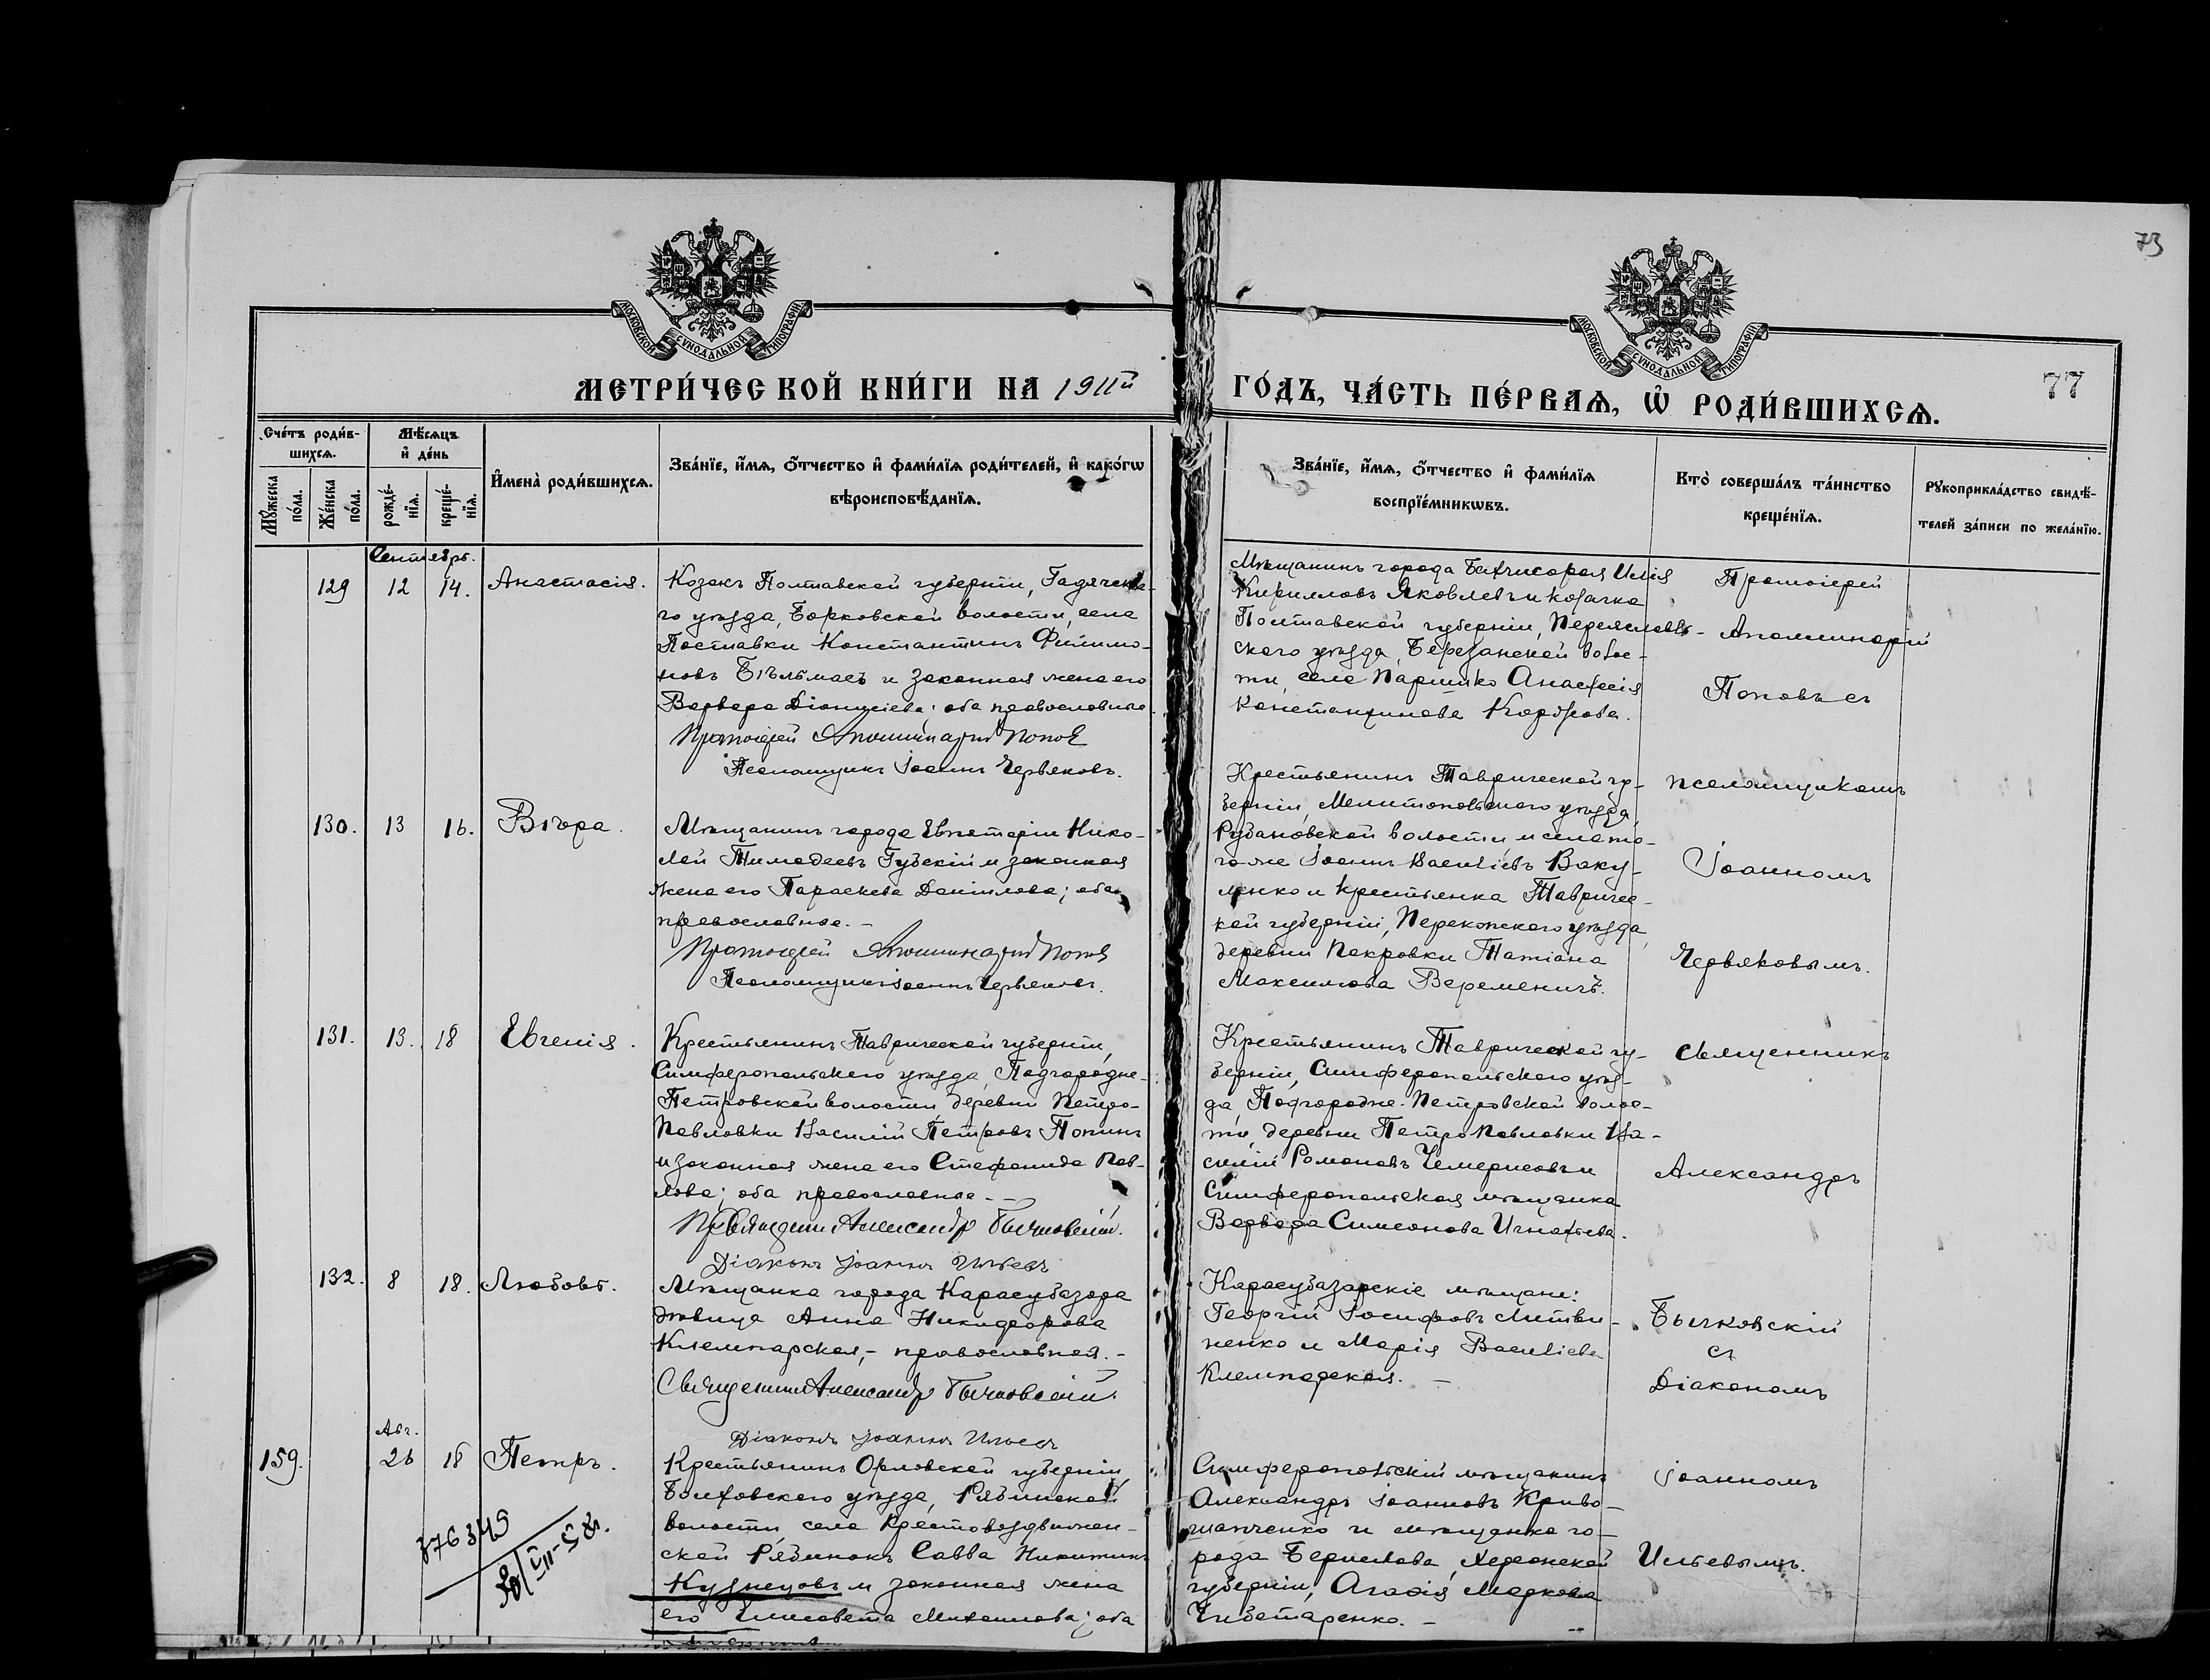 73
МОСКОВСКОЙ СѴНОДАЛЬНОЙ ТИПОГРАФІИ
МОСКОВСКОЙ СѴНОДАЛЬНОЙ ТИПОГРАФІИ
МЕТРИ́ЧЕСКОЙ КНИ́ГИ НА 1911й
ГО́ДЪ, ЧА́СТЬ ПЕ́РВАѦ, Ѡ҆ РОДИ́ВШИХСѦ.
77
Сче́тъ роди́в-
шихсѧ.
Мѣ́сѧцъ
и҆ де́нь
Мꙋ́жеска по́ла.
Же́нска по́ла.
рожде́-
нїѧ.
креще́-
нїѧ.
И҆мена̀ роди́вшихсѧ.
Зва́нїе, и҆́мѧ, ѻ҆́тчество и҆ фами́лїѧ роди́телей, и҆ како́гѡ
вѣроисповѣ́данїѧ.
Зва́нїе, и҆́мѧ, ѻ҆́тчество и҆ фами́лїѧ
воспрїе́мникѡвъ.
Кто̀ соверша́лъ та́инство
креще́нїѧ.
Рꙋкоприкла́дство свидѣ́-
телей за́писи по жела́нїю.
Сентябрь.
129 12 14. Анастасія.
Козакъ Полтавской губерніи, Гадячска-
го уѣзда, Борковской волости, села
Поставки Константинъ Филимо-
новъ Бѣльмасъ и законная жена его
Варвара Діонисіева; оба православные.
Протоіерей Аполлинарій Поповъ
Псаломщикъ Іоаннъ Червяковъ.
Мѣщанинъ города Бахчисарая Илія
Кирилловъ Яковлевъ и козачка
Полтавской губерніи, Переяслав-
скаго уѣзда, Березанской волос-
ти, села Анастасія
Константинова
Протоіерей
Аполлинарій
Поповъ съ
псаломщикомъ
Іоанномъ
Червяковымъ.
130. 13 16. Вѣра.
Мѣщанинъ города Евпаторіи Нико-
лай Тимофеевъ Губскій и законная
жена его Параскева Даніилова; оба
православные. -
Протоіерей Аполлинарій Поповъ
Псаломщикъ Іоаннъ Червяковъ.
Крестьянинъ Таврической гу-
берніи, Мелитопольскаго уѣзда,
Рубановской волости и села то-
гоже Іоаннъ Василіевъ Ваку-
ленко и крестьянка Тавричес-
кой губерніи, Перекопскаго уѣзда,
деревни Покровки Татіана
Максимова Веременичъ.
131. 13. 18 Евгенія.
Крестьянинъ Таврической губерніи,
Симферопольскаго уѣзда, Подгородне-
Петровской волости, деревни Петро-
Павловки Василій Петровъ Попинъ
и законная жена его Стефанида Пав-
лова; оба православные. -
Священникъ Александръ Бычковскій.
Діаконъ Іоаннъ Ильевъ
Крестьянинъ Таврической гу-
берніи, Симферопольскаго уѣз-
да, Подгородне-Петровской волос-
ти, деревни Петропавловки Ва-
силій Романовъ Чемерисовъ и
Симферопольская мѣщанка
Варвара Симеонова Игнатьева.
священникъ
Александръ
Бычковскій
съ
Діакономъ
Іоанномъ
Ильевымъ.
132. 8 18. Любовь.
Мѣщанка города Карасубазара
дѣвица Анна Никифорова
Клемпарская, - православная. -
Священникъ Александръ Бычковскій.
Діаконъ Іоаннъ Ильевъ
Карасубазарскіе мѣщане:
Георгій Іосифовъ Литви-
ненко и Марія Василіева
Клемпарская. -
Авг.
159. 26 18 Петръ.
Крестьянинъ Орловской губерніи,
Болховскаго уѣзда, Рябинской
волости, села Крестовоздвижен-
ской Рябинокъ Савва Никитинъ
Кузнецовъ и законная жена
его Елисавета Михаилова; оба
Симферопольскій мѣщанинъ
Александръ Іоанновъ Криво-
шапченко и мѣщанка го-
рода Берислава, Херсонской
губерніи, Агафія Маркова
Чиботаренко. -